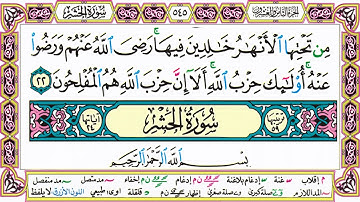 سُورَةُ الحَشْرِ
٥٤٥
الجزء الثامن والعشرون
مِن تَحْتِهَا ٱلْأَنْهَٰرُ خَٰلِدِينَ فِيهَا ۚ رَضِىَ ٱللَّهُ عَنْهُمْ وَرَضُوا۟
عَنْهُ ۚ أُو۟لَٰٓئِكَ حِزْبُ ٱللَّهِ ۚ أَلَآ إِنَّ حِزْبَ ٱللَّهِ هُمُ ٱلْمُفْلِحُونَ ٢٢
ترتيبها ٥٩ سُورَةُ الحَشْرِ آياتها ٢٤
بِسْمِ ٱللَّهِ ٱلرَّحْمَٰنِ ٱلرَّحِيمِ